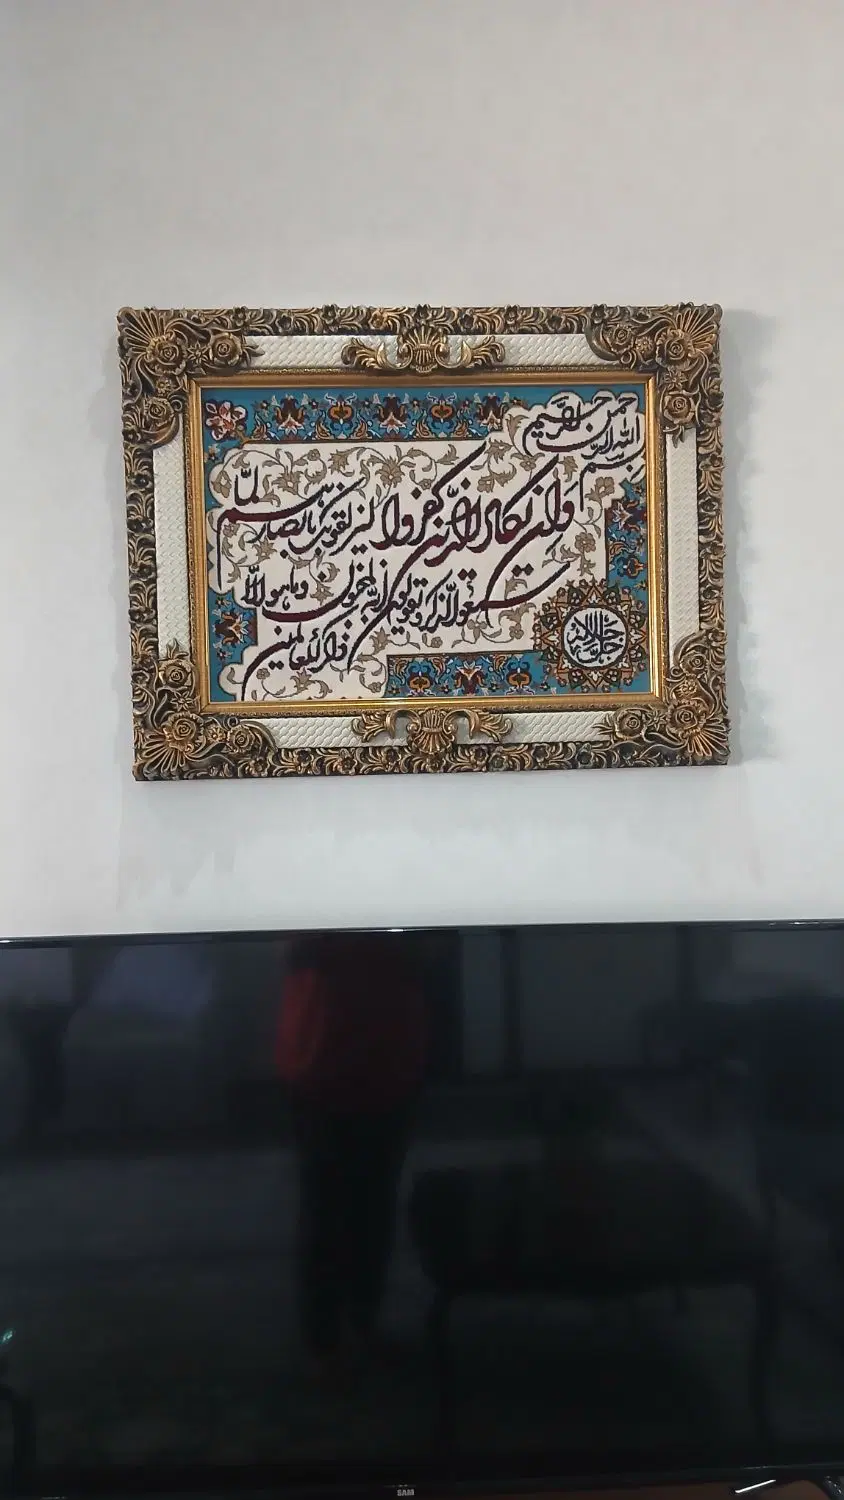 بسم الله الرحمن الرحیم
وان یکاد الذین کفروا لیزلقونک بابصارهم لما
سمعوا الذکر و یقولون انه لمجنون وما هو الا
ذکر للعالمین
الله جل جلاله
SAM